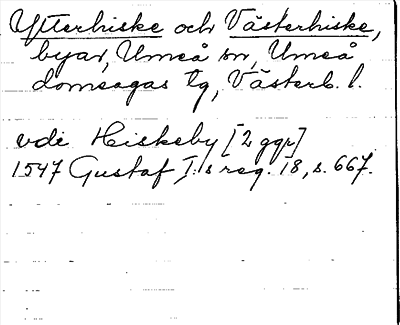 Ytterhiske och Västerhiske,
byar, Umeå sn, Umeå
domsagas tg, Västerb. l.
vdi Hiskeby [2 ggr]
1547 Gustaf I:s reg. 18, s. 667.